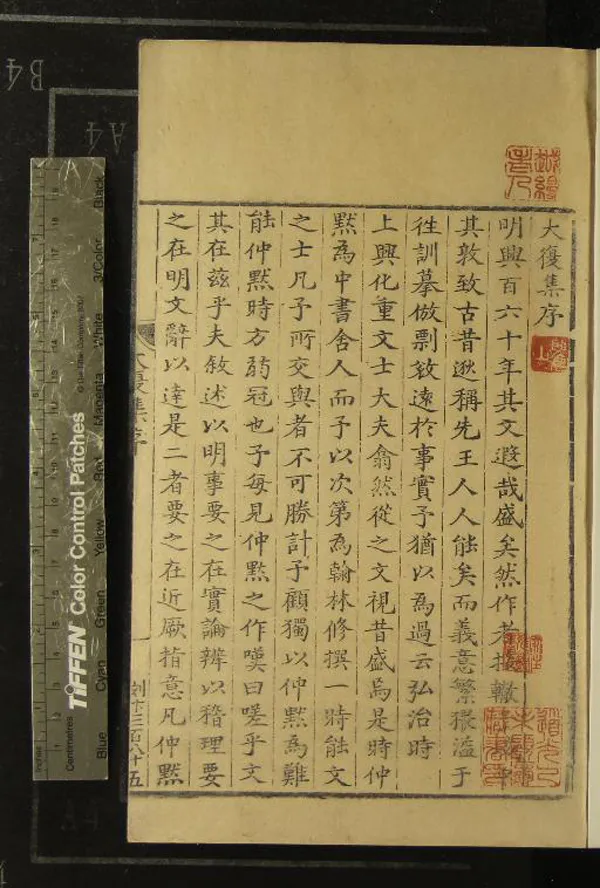 大復集序
明興百六十年其文遐哉盛矣然作者接轍
其敦致古昔逖稱先王人人能矣而義意繁猥溢于
往訓摹倣剽敓遠於事實予猶以為過云弘治時
上興化重文士大夫翕然從之文視昔盛焉是時仲
黙為中書舍人而予以次第為翰林修撰一時能文
之士凡予所交與者不可勝計予顧獨以仲黙為難
能仲黙時方弱冠也予每見仲黙之作嘆曰嗟乎文
其在兹乎夫敘述以明事要之在實論辨以稽理要
之在明文辭以達是二者要之在近厥指意凡仲黙
大復集序
刘卞三百八十五
B4
A4
TIFFEN Color Control Patches
© The Tiffen Company, 2007
Centimetres
Inches
Blue
Cyan
Green
Yellow
Red
Magenta
White
3/Color
Black